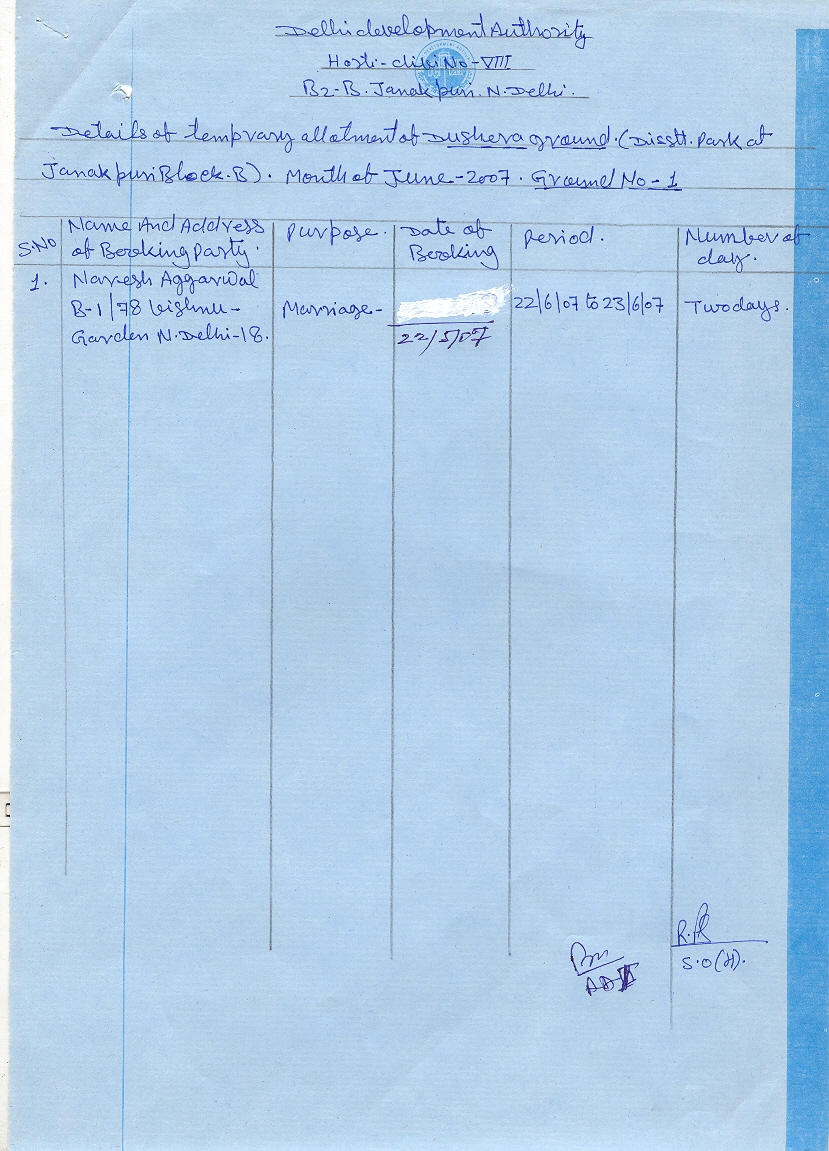 Delhi development Authority
Horti-divi No-VIII
B2-B. Janakpuri. N. Delhi.
Details of temprary allotment of Dushera ground. (Disstt. Park at
Janakpuri Block. B). Month of June-2007. Ground No-1
S.No Name And Address of Booking Party. Purpose. Date of Booking Period. Number of day.
1. Naresh Aggarwal
B-1/78 Vishnu- Marriage- 22/6/07 to 23/6/07 Two days.
Garden N. Delhi-18. 22/5/07
R.
S.O(H).